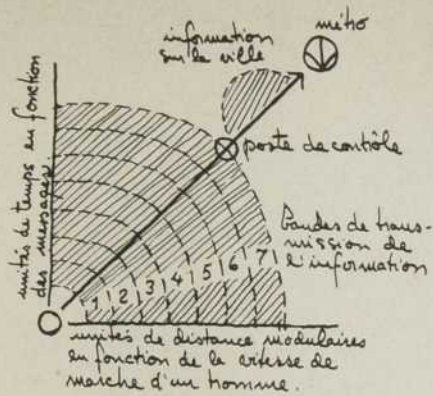 métro
information
sur la ville
poste de contrôle
unités de temps en fonction
des messages.
Bandes de trans-
mission de
l'information
1 2 3 4 5 6 7
unités de distance modulaires
en fonction de la vitesse de
marche d'un homme.